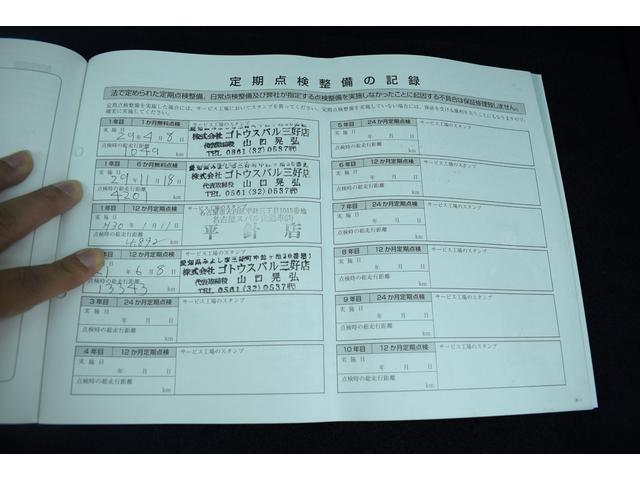 定期点検整備の記録
法で定められた定期点検整備、日常点検整備及び弊社が指定する点検整備を実施しなかったことに起因する不具合は保証修理致しません。
定期点検整備を実施した場合には、サービス工場においてスタンプを貰ってください。定期点検整備を実施していない場合には、保証を受ける権利を失うことにもなりますので、
確実に実施してください。
1年目 1か月無料点検
実施日
29年4月8日
点検時の総走行距離
1049 km
株式会社 ゴトウスバル三好店
代表取締役 山口晃弘
TEL 0561(32)0537㈹
1年目 6か月無料点検
実施日
29年11月18日
点検時の総走行距離
4201 km
株式会社 ゴトウスバル三好店
代表取締役 山口晃弘
TEL 0561(32)0537㈹
1年目 12か月定期点検
サービス工場のスタンプ
H30年1月11日
点検時の総走行距離
4892 km
平針店
6月8日
点検時の総走行距離
13343 km
株式会社 ゴトウスバル三好店
代表取締役 山口晃弘
TEL 0561(32)0537㈹
3年目 24か月定期点検
サービス工場のスタンプ
実施日
年 月 日
点検時の総走行距離
km
4年目 12か月定期点検
サービス工場のスタンプ
実施日
年 月 日
点検時の総走行距離
km
5年目 24か月定期点検
サービス工場のスタンプ
実施日
年 月 日
点検時の総走行距離
km
6年目 12か月定期点検
サービス工場のスタンプ
実施日
年 月 日
点検時の総走行距離
km
7年目 24か月定期点検
サービス工場のスタンプ
実施日
年 月 日
点検時の総走行距離
km
8年目 12か月定期点検
サービス工場のスタンプ
実施日
年 月 日
点検時の総走行距離
km
9年目 24か月定期点検
サービス工場のスタンプ
実施日
年 月 日
点検時の総走行距離
km
10年目 12か月定期点検
サービス工場のスタンプ
実施日
年 月 日
点検時の総走行距離
km